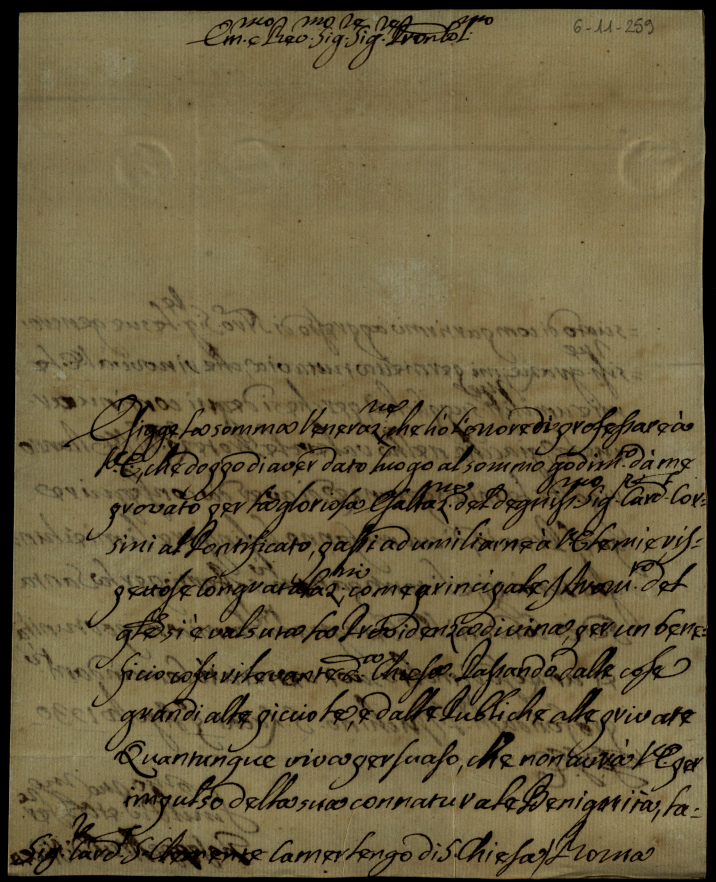 Em.mo e Re.mo Sig.re Sig.re Pron Col.mo
6-11-259
Esigge la somma Veneraz.ne che hò l'onore di professare à
V.E., che doppo di aver dato luogo al sommo godim.to dà me
provato per la gloriosa Esaltaz.ne del degniss.mo Sig.r Card.l Cor-
sini al Pontificato, passi ad umiliarne à V.E. le mie ris-
pettose Congratulaz.ni come principale Strom.to del
q.le si è valsuta la Providenza divina, per un bene-
ficio così rilevante Chiesa. Passando dalle cose
grandi alle picciole, e dalle Publiche alle private
Quantunque viva persuaso, che non avrà V.E. per
impulso della sua connaturale Benignità, la-
Sig.r Card. S. Clemente Camerlengo di S. Chiesa / Roma